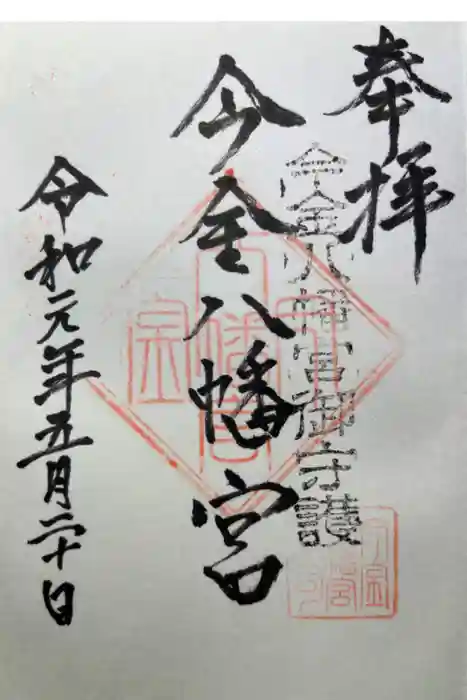 奉拝
今金八幡宮御守護
今金八幡宮
令和元年五月二十日